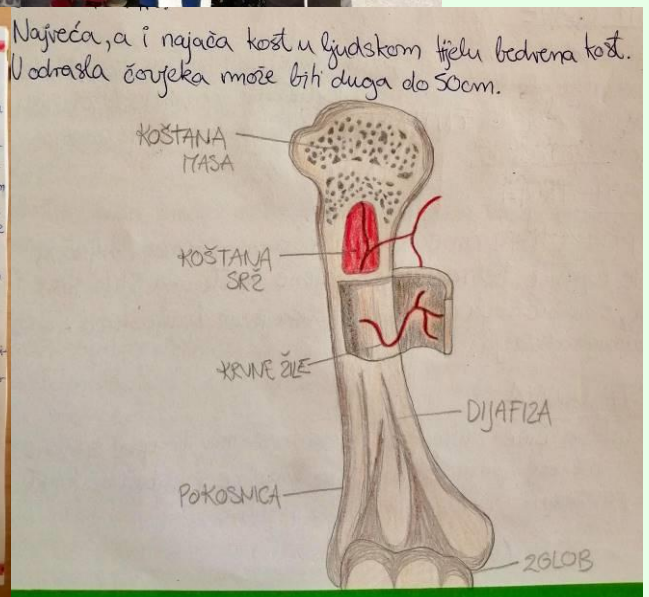 Najveća, a i najača kost u ljudskom tijelu bedrena kost.
U odrasla čovjeka može biti duga do 50cm.
KOŠTANA
MASA
KOŠTANA
SRŽ
KRVNE ŽILE
DIJAFIZA
POKOSNICA
ZGLOB